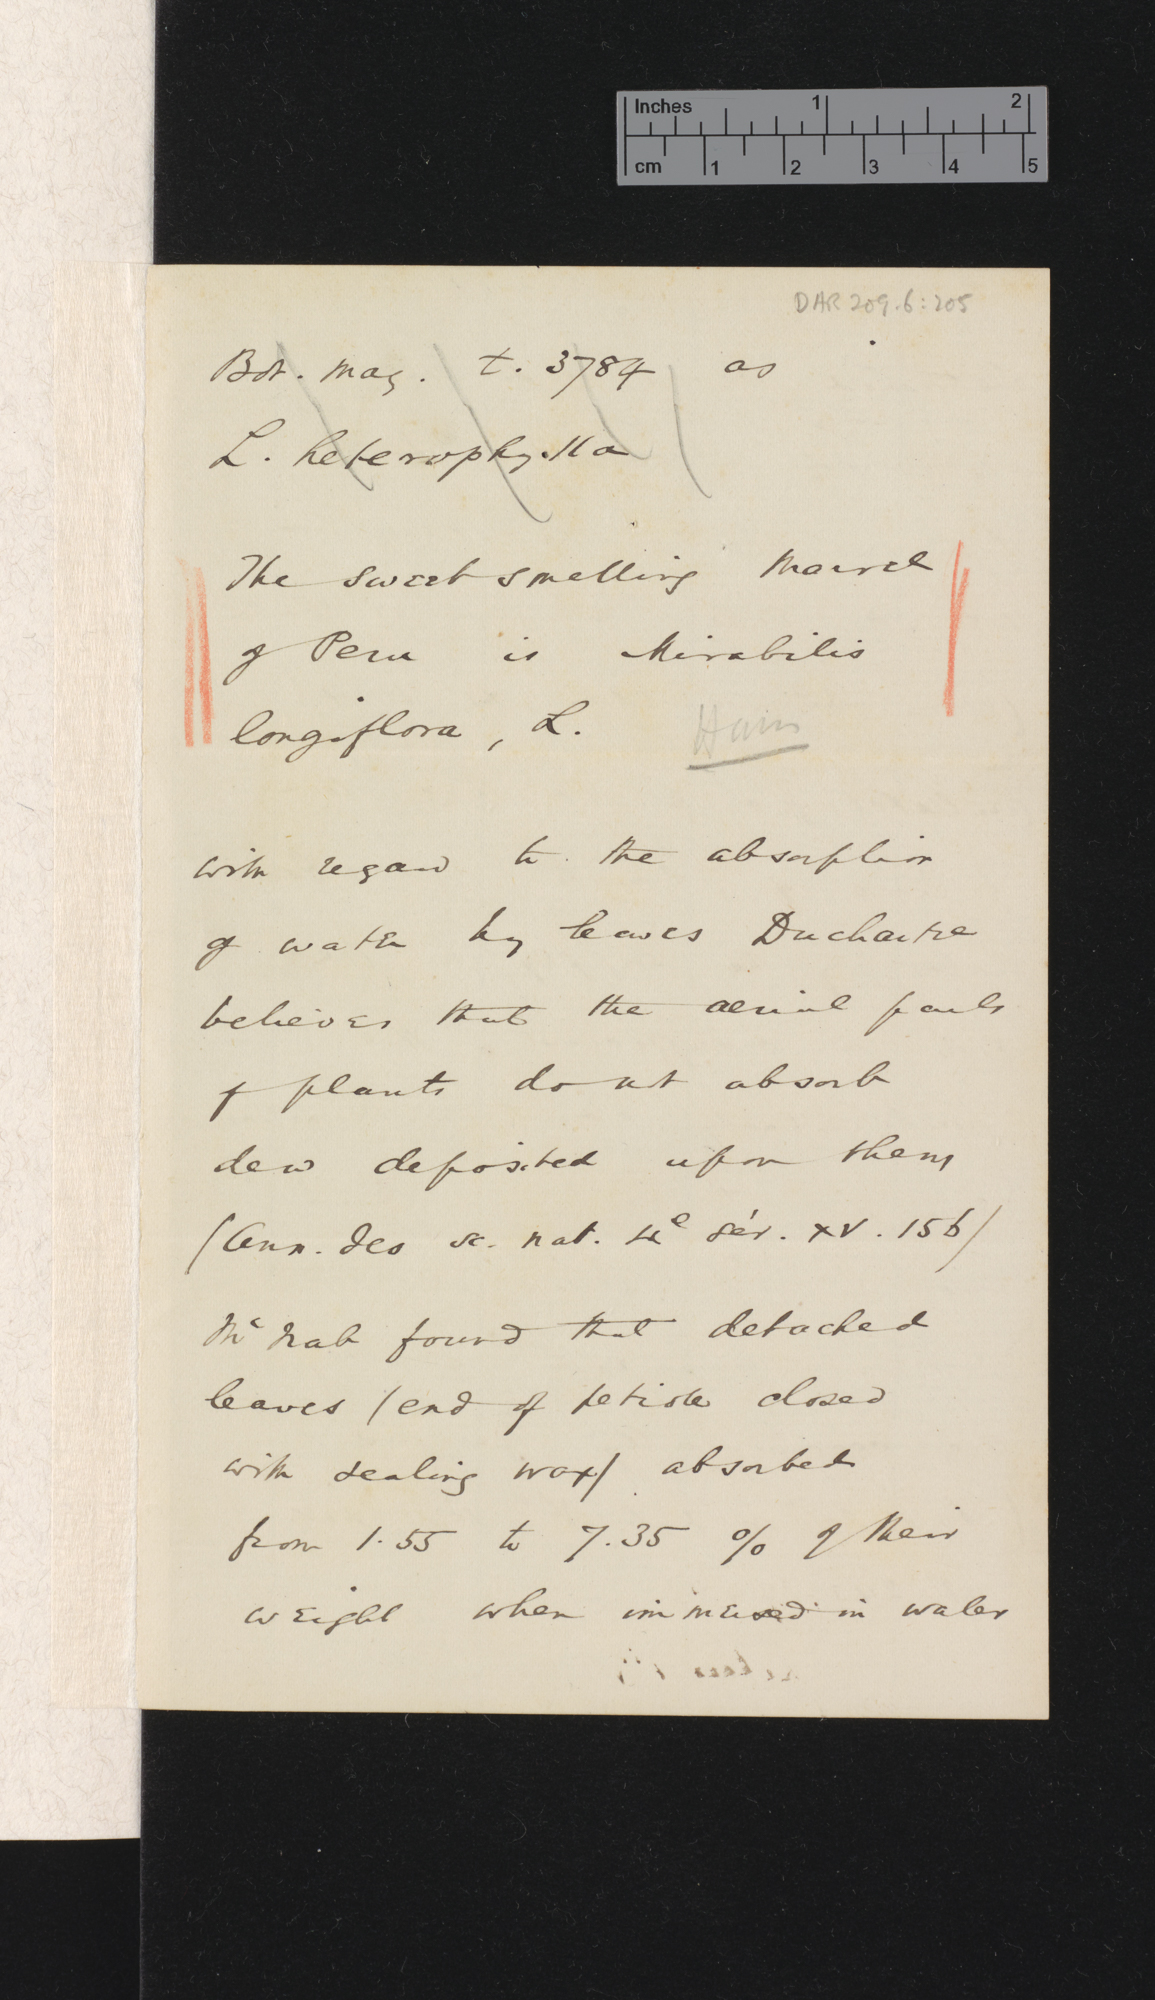 Inches 1 2
cm 1 2 3 4 5
DAR 209.6:205
Bot. Mag. t. 3784 as
L. heterophylla
The sweet smelling Marvel
of Peru is Mirabilis
longiflora, L.
with regard to the absorption
of water by leaves Duchartre
believes that the aerial parts
of plants do not absorb
dew deposited upon them
(Ann. des sc. nat. 4e sér. XV. 156)
McNab found that detached
leaves (end of petiole closed
with sealing wax) absorbed
from 1.55 to 7.35 % of their
weight when immersed in water